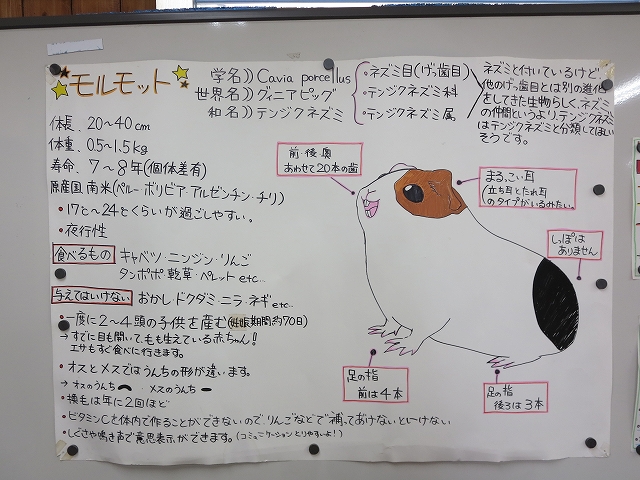 モルモット
学名)) Cavia porcellus
世界名)) ギィニアピッグ
和名)) テンジクネズミ
・ネズミ目(げっ歯目)
・テンジクネズミ科
・テンジクネズミ属
ネズミと付いているけど、
他のげっ歯目とは別の進化
をしてきた生物らしく、ネズミ
の仲間というより、テンジクネズミ
はテンジクネズミと分類してほしい
そうです。
体長、20〜40cm
体重、0.5〜1.5kg
寿命、7〜8年(個体差有)
原産国 南米(ペルー・ボリビア・アルゼンチン・チリ)
・17℃〜24℃くらいが過ごしやすい。
・夜行性
食べるもの キャベツ・ニンジン・りんご
タンポポ・乾草・ペレット etc..
与えてはいけない おかし・ドクダミ・ニラ・ネギ etc..
・一度に2〜4頭の子供を産む(妊娠期間約70日)
→すでに目も開いて、毛も生えている赤ちゃん!
エサもすぐ食べに行きます。
・オスとメスではうんちの形が違います。
→オスのうんち メスのうんち
・換毛は年に2回ほど
・ビタミンCを体内で作ることができないので、りんごなどで補ってあげないといけない
・しぐさや鳴き声で意思表示ができます。(コミュニケーションとりやすいよ!)
前・後・奥
あわせて20本の歯
まるっこい耳
(立ち耳とたれ耳
のタイプがいるみたい。
しっぽは
ありません
足の指
前は4本
足の指
後ろは3本